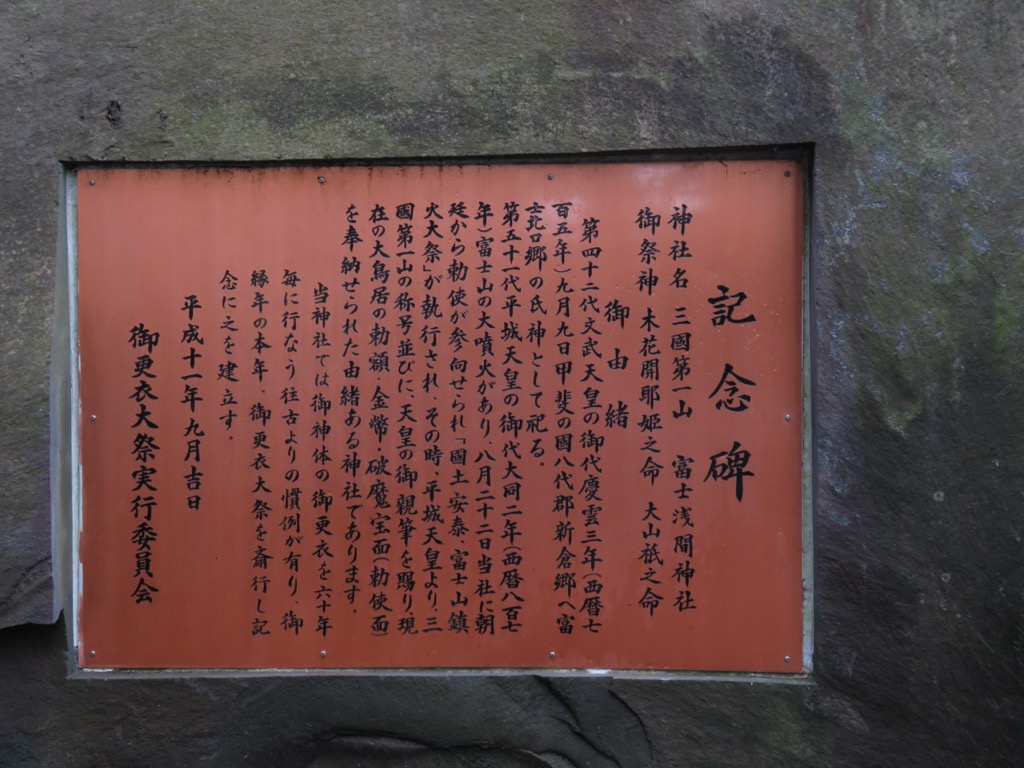 記念碑
神社名 三國第一山 富士浅間神社
御祭神 木花開耶姫之命 大山祇之命
御由緒
第四十二代文武天皇の御代慶雲三年(西暦七
百五年)九月九日甲斐の國八代郡新倉郷へ富
士北口郷の氏神として祀る。
第五十一代平城天皇の御代大同二年(西暦八百七
年)富士山の大噴火があり、八月二十二日当社に朝
廷から勅使が参向せられ「國土安泰、富士山鎮
火大祭」が執行され、その時、平城天皇より、三
國第一山の称号並びに、天皇の御親筆を賜り現
在の大鳥居の勅額・金幣・破魔宝面(勅使面)
を奉納せられた由緒ある神社であります。
当神社では御神体の御更衣を六十年
毎に行なう往古よりの慣例が有り、御
縁年の本年、御更衣大祭を斎行し記
念に之を建立す。
平成十一年九月吉日
御更衣大祭実行委員会